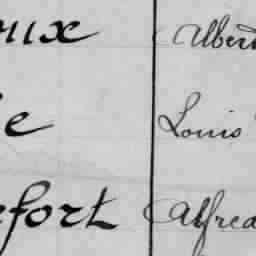 oux Albert
le Louis
efort Alfred